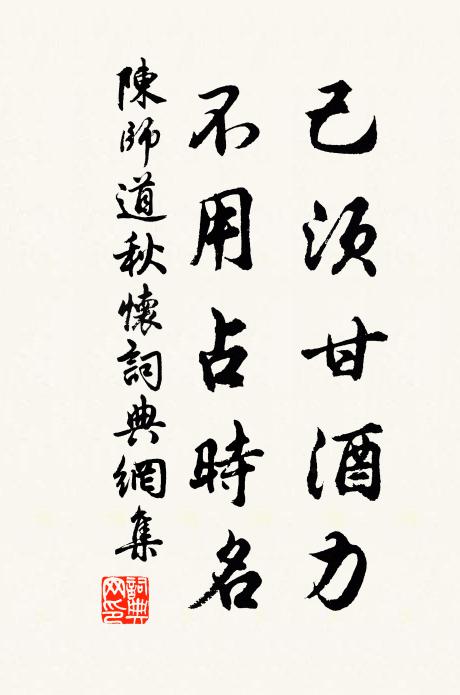 已须甘酒力
不用占時名
陳師道秋懷詞典網集
詞典網印